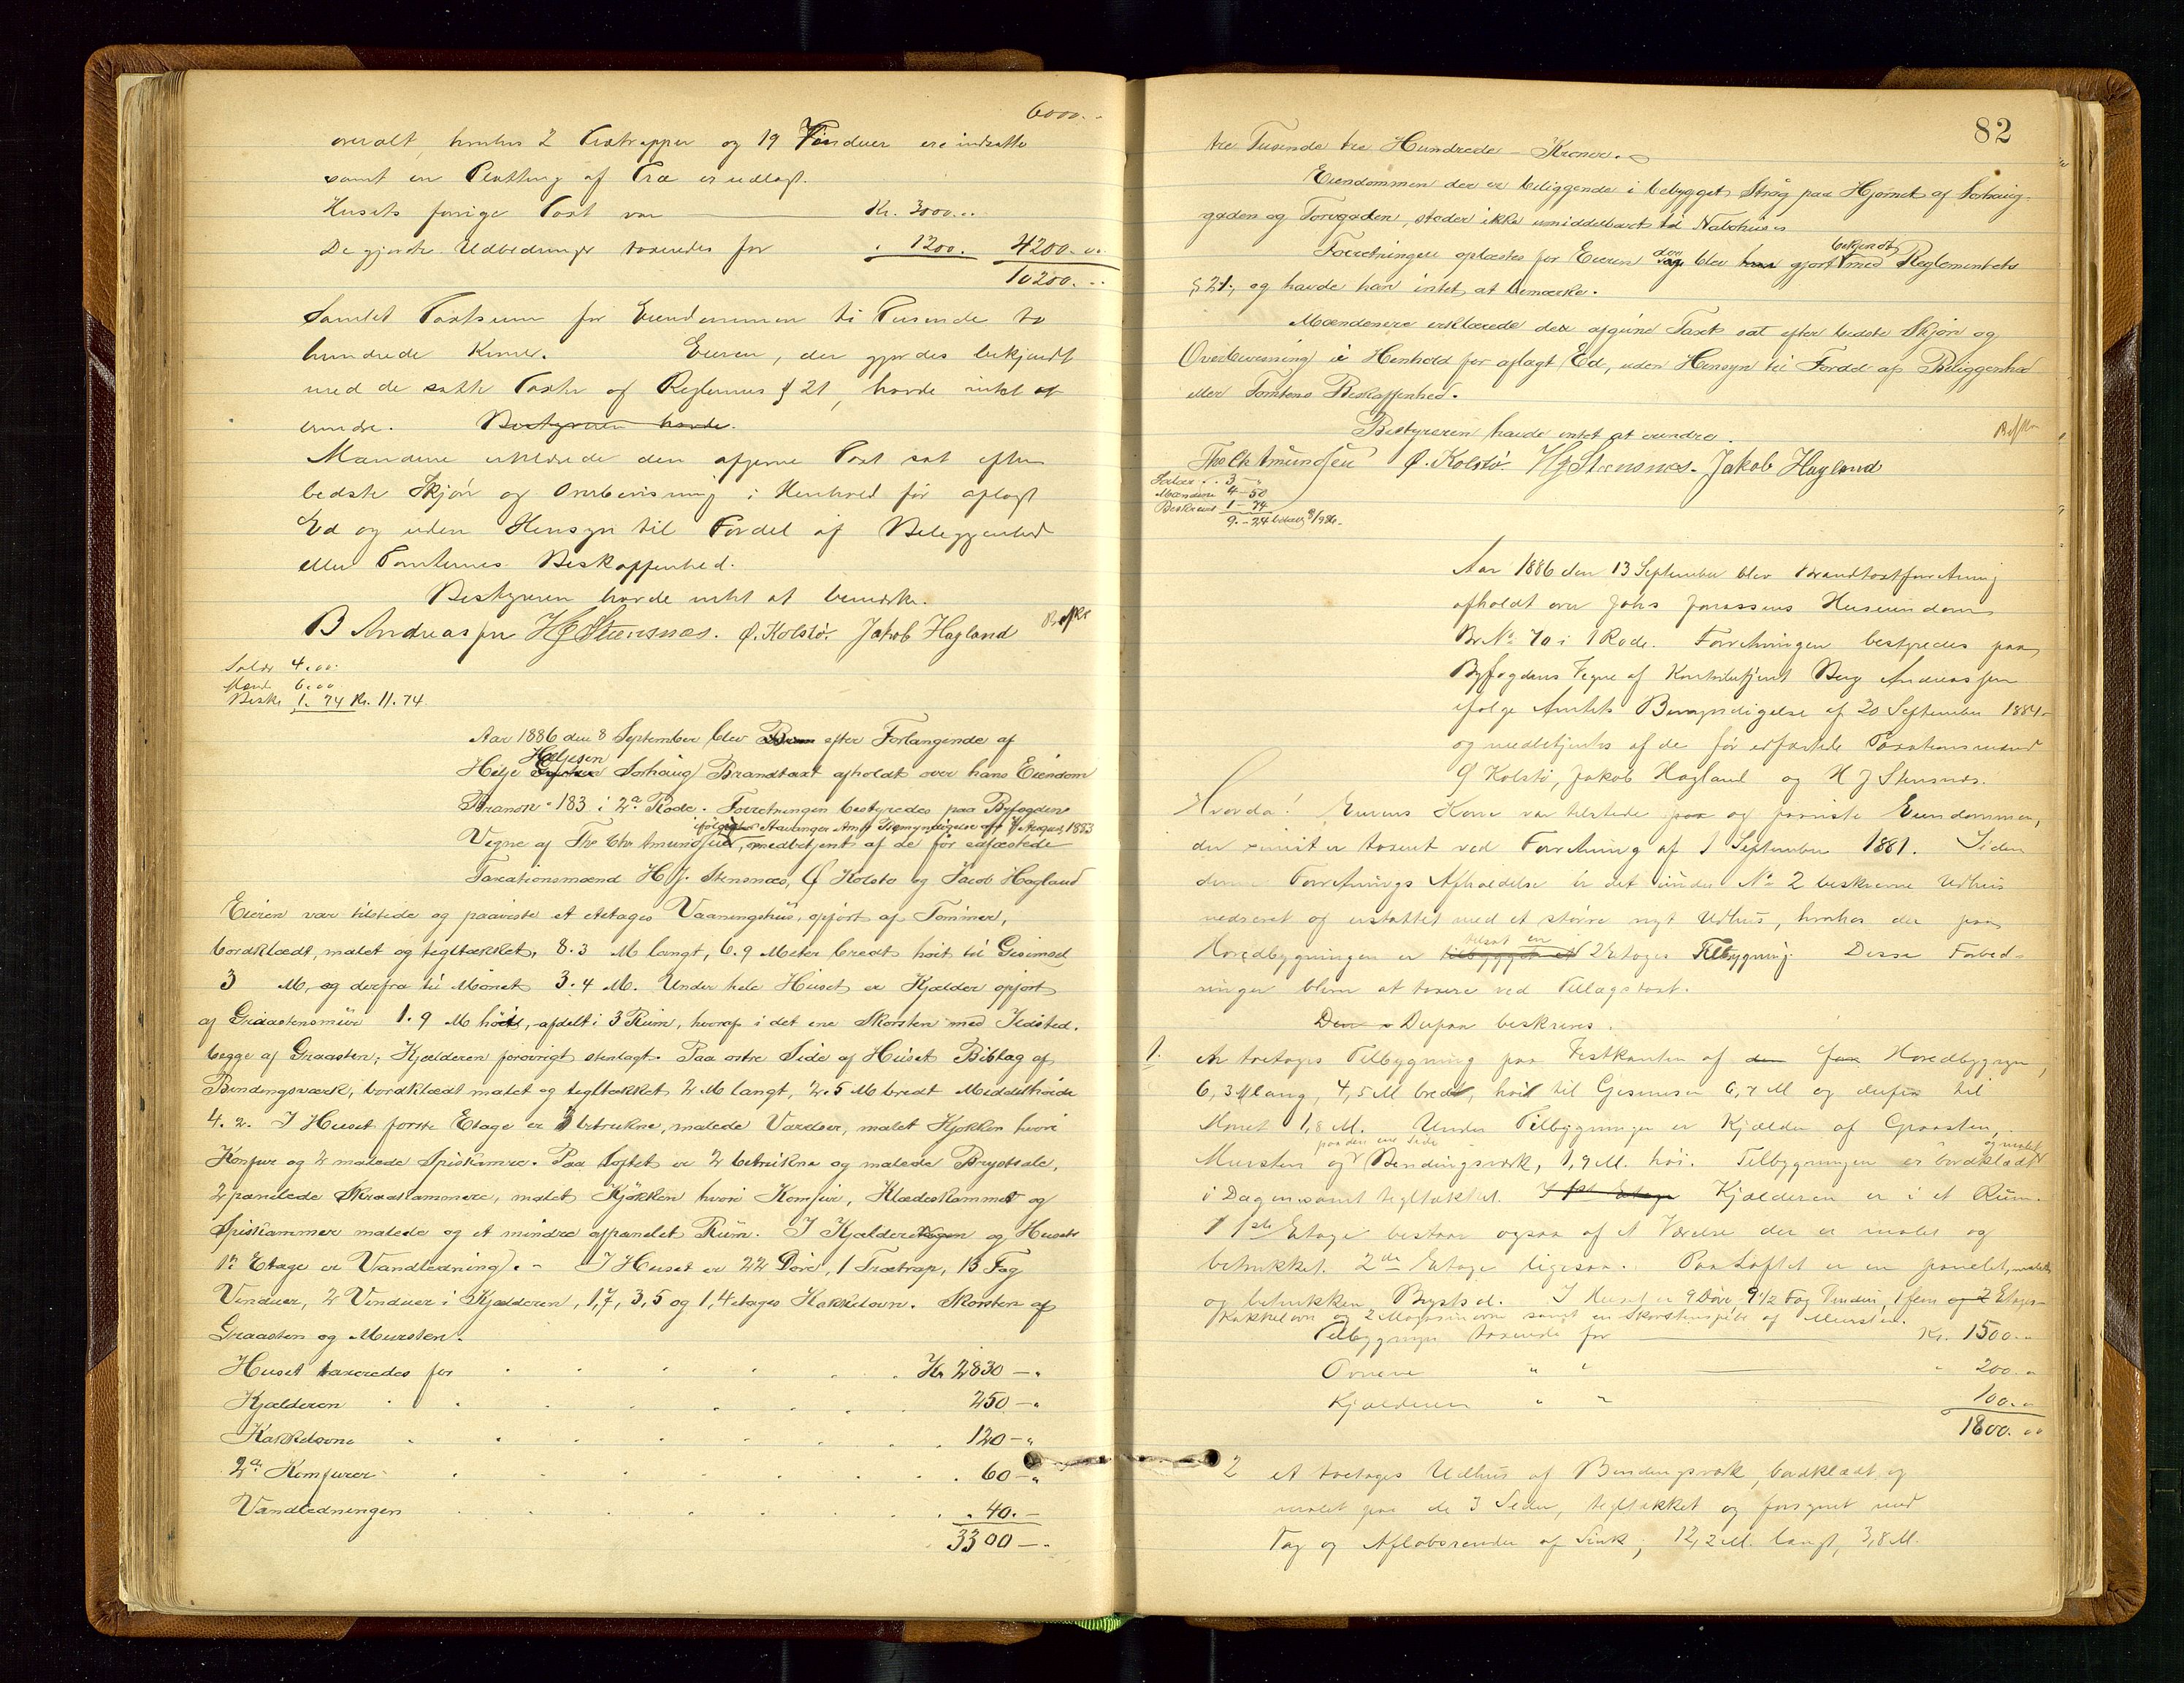 6000.-
overalt, hvorhos 2 Trætrapper og 19 Vinduer ere indsatte
samt en Platting af Træ er udlagt.
Husets forrige Taxt var Kr. 3000..
De gjorte Udbedringer taxeredes for " 1200. 4200.00
10200.--
Samlet Taxtsum for Eiendommen ti Tusende to
hundrede Kroner. Eieren, der gjordes bekjendt
med de satte Taxter og Reglernes § 21, havde intet at
erindre. Bestyreren havde.
Mændene erklærede den afgivne Taxt sat efter
bedste Skjøn og Overbevisning i Henhold før aflagt
Ed og uden Hensyn til Fordel af Beliggenhed
eller Tomternes Beskaffenhed.
Bestyreren havde intet at bemærke.
B Andreassen HJStensnæs. O. Kolstø. Jakob Hagland
Salær 4.00
Mænd 6.00
Beskr 1.74 Kr. 11.74
Aar 1886 den 8 September blev efter Forlangende af
Helgesen
Helje Sørhaug Brandtaxt afholdt over hans Eiendom
Branno 183 i 2a Rode. Forretningen bestyredes paa Byfogdens
ifølge Stavanger Amts Bemyndigelse af August 1883
Vegne af Ths. Chr. Amundsen, medbetjent af de før edfæstede
Taxationsmænd H.J. Stensnæs, O Kolstø og Jacob Hagland
Eieren var tilstede og paaviste et etetages Vaaningshus, opført af Tømmer,
bordklædt, malet og tegltækket, 8.3 M langt, 6.9 Meter bredt høit til Gesimsed
3 M, og derfra til Mønet 3.4 M. Under hele Huset er Kjælder opført
af Graastensmur 1.9 M høit, afdelt i 3 Rum, hvoraf i det ene Skorsten med Ildsted.
begge af Graasten; Kjælderen forøvrigt stenlagt. Paa østre Side af Huset Bislag af
Bindingsværk, bordklædt malet og tegltækket 2 M langt, 2.5 M bredt Middelhøide
4.2. I Huset første Etage er 3 betrukne, malede Værelser, malet Kjøkken hvori
Komfur og 2 malede Spiskamre. Paa Loftet er 2 betrukne og malede Brystsale,
2 panelede Skraakammere, malet Kjøkken hvori Komfur, Klædeskammer og
Spiskammer malede og et mindre afpanelet Rum. I Kjælderetagen og Husets
1e Etage er Vandledning. - I Huset er 22 Døre, 1 Trætrap, 13 Fag
Vinduer, 2 Vinduer i Kjælderen, 1,7, 3,5 og 1,4 etages Kakkelovn. Skorsten af
Graasten og Mursten.
Huset taxeredes for Kr 2830 -"
Kjælderen 250 -"
Kakkelovne 120 -"
2de Komfurer 60 -"
Vandledningen 40.-
3300 -"
82
tre Tusende tre Hundrede - Kroner.
Eiendommen der er beliggende i bebygget Strøg paa Hjørnet af Sørhaug-
gaden og Torvgaden, støder ikke umiddelbart til Nabohuser
bekjendt
Forretningen oplæstes for Eieren der blev gjort med Reglementets
§ 21, og havde han intet at bemærke.
Mændenere erklærede den afgivne Taxt sat efter bedste Skjøn og
Overbevisning i Henhold før aflagt Ed, uden Hensyn til Fordel af Beliggenhed
eller Tomtens Beskaffenhed.
Bestyreren havde intet at erindre.
Ths Chr Amundsen O. Kolstø. HJStensnes. Jakob Hagland
Salær .. 3 - "
Mændene 4-50
Beskrivn 1-74
9.-24
Aar 1886 den 13 September blev Brandtaxtforretning
afholdt over Johs Jonassens Huseiendom
Br.No 70 i 1 Rode. Forretningen bestyredes paa
Byfogdens Vegne af Kontorbetjent Berg Andreassen
ifølge Amtets Bemyndigelse af 20 September 1884
og medbetjentes af de før edfæstede Taxationsmænd
O Kolstø, Jakob Hagland og H J Stensnæs.
Hvorda! Eierens Kone var tilstede og paaviste Eiendommen,
der sidst er taxeret ved Forretning af 1 September 1881. Siden
denne Forretnings Afholdelse er det under No 2 beskrevne Udhus
nedrevet og erstattet med et større nyt Udhus, hvorhos der paa
tilsat en
Hovedbygningen er 2 Etages Tilbygning. Disse Forbed-
ringer bliver at taxere ved Tillægstaxt.
Derpaa beskreves.
1. en toetages Tilbygning paa Vestkanten af Hovedbygngen,
6,3 M lang, 4,5 M bred, høi til Gesimsen 6,7 M og derfra til
Mønet 1,8 M. Under Tilbygningen er Kjælder af Graasten,
paa den ene Side
og malet
Mursten og Bindingsværk, 1,9 M. høi. Tilbygningen er bordklædt
i Dagen samt tegltækket. Kjælderen er i et Rum.
I 1ste Etage bestaar ogsaa af et Værelse der er malet og
betrukket. 2den Etage ligesaa. Paa Loftet er en panelet, malet
og betrukken Brystsal. I Huset er 9 Døre 9 1/2 Fag Vinduer, 1 fem og 2 Etages
Kakkelovn og 2 Magasinovne samt en Skorstenspibe af Mursten.
Tilbygngen taxeredes for Kr. 1500.-
Ovnene " " " 200.-
Kjælderen " " 100.-
1800.00
2 et toetages Udhus af Bindingsværk, bordklædt og
malet paa de 3 Sider, tegltækket og forsynet med
Tag og Afløbsrender af Sink, 12,2 M. langt, 3,8 M.